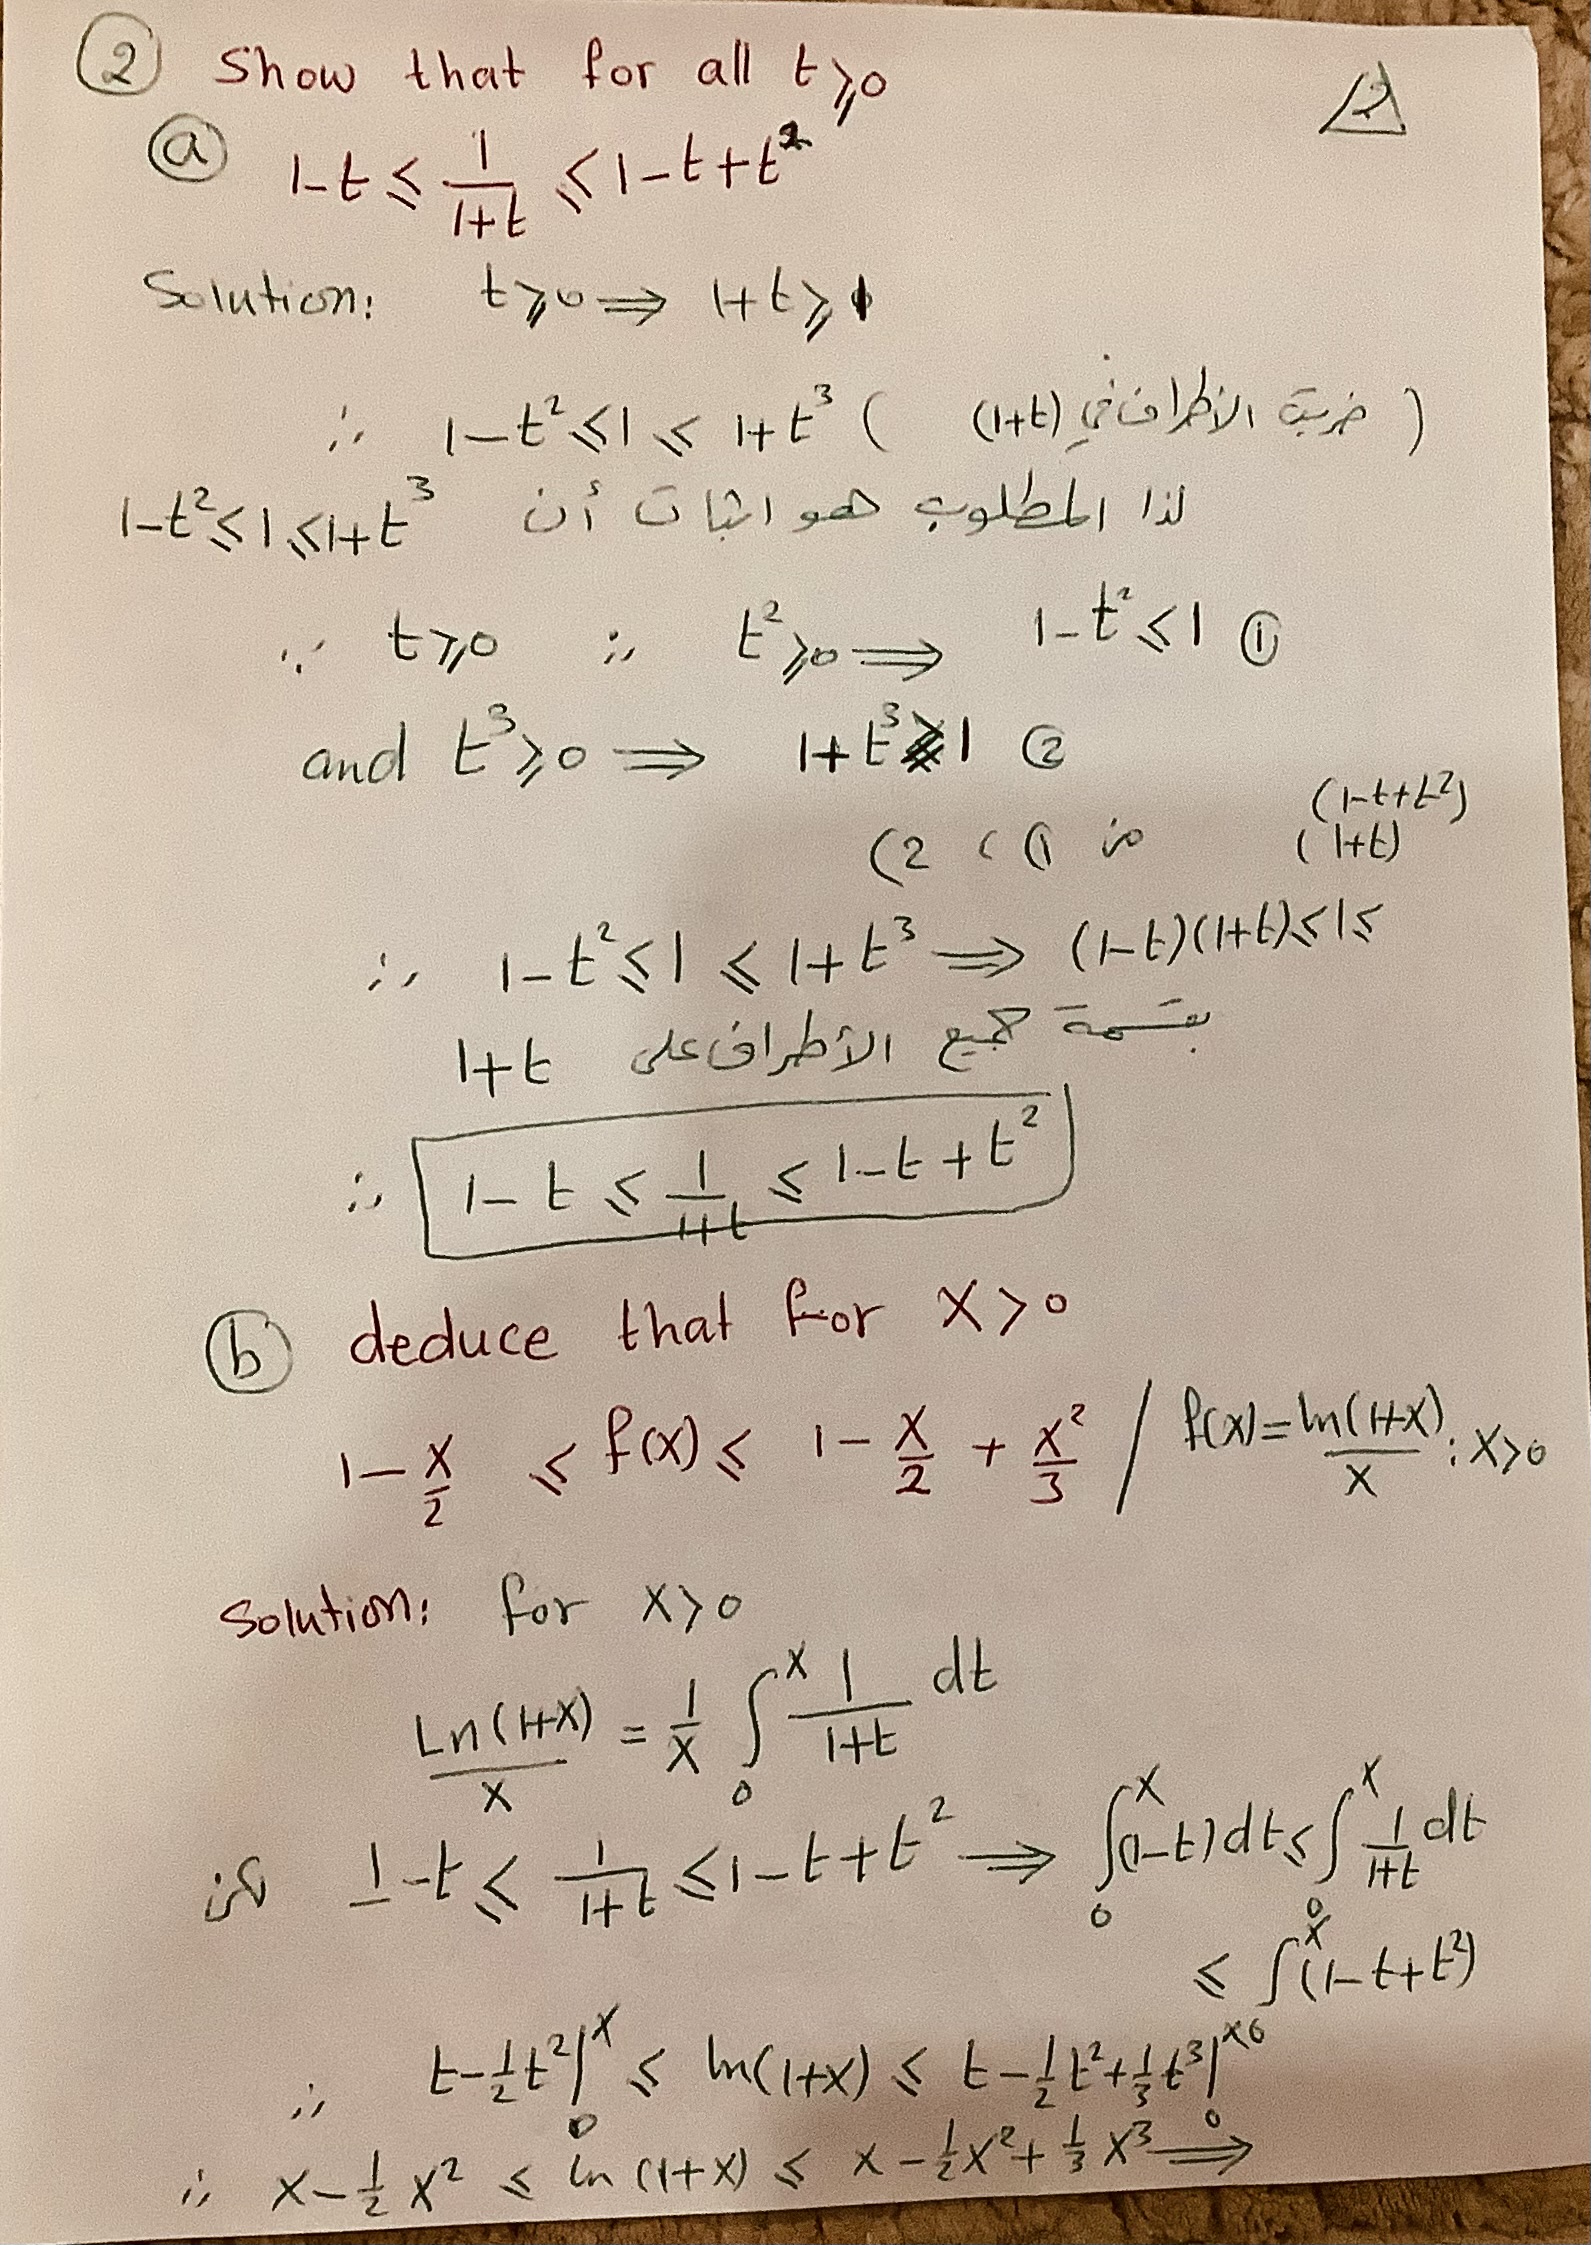 ② Show that for all t ⩾ 0
2
ⓐ 1-t ⩽ 1/(1+t) ⩽ 1-t+t²
Solution: t⩾0 ⟹ 1+t ⩾ 1
∴ 1-t² ⩽ 1 ⩽ 1+t³ ( ضربت الأطراف في (1+t) )
لذا المطلوب هو اثبات أن 1-t² ⩽ 1 ⩽ 1+t³
∵ t⩾0 ∴ t²⩾0 ⟹ 1-t² ⩽ 1 ①
and t³⩾0 ⟹ 1+t³ ⩾ 1 ②
(1-t+t²)
من ① ، 2) (1+t)
∴ 1-t² ⩽ 1 ⩽ 1+t³ ⟹ (1-t)(1+t) ⩽ 1 ⩽
بقسمة جميع الأطراف على 1+t
∴ 1-t ⩽ 1/(1+t) ⩽ 1-t+t²
ⓑ deduce that for x > 0
1 - x/2 ⩽ f(x) ⩽ 1 - x/2 + x²/3 / f(x) = ln(1+x)/x : x>0
Solution: for x > 0
Ln(1+x)/x = 1/x ∫₀ˣ 1/(1+t) dt
لكن 1-t ⩽ 1/(1+t) ⩽ 1-t+t² ⟹ ∫₀ˣ (1-t)dt ⩽ ∫₀ˣ 1/(1+t) dt
⩽ ∫ˣ (1-t+t²)
∴ t - ½t² |₀ˣ ⩽ ln(1+x) ⩽ t - ½t² + ⅓t³ |₀ˣ
∴ x - ½x² ⩽ ln(1+x) ⩽ x - ½x² + ⅓x³ ⟹